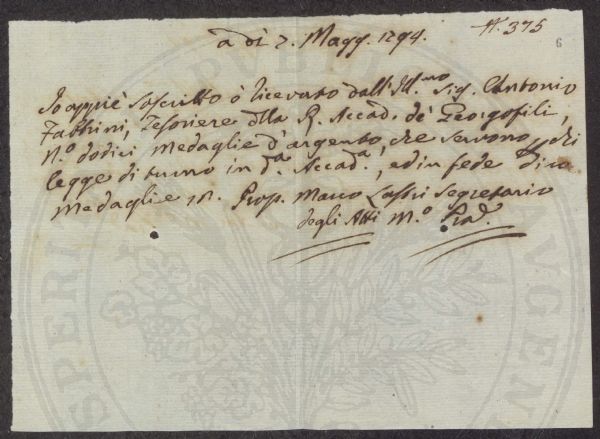 N. 375
6
à dì 7. Magg. 1794.
Io appiè soscritto ò ricevuto dall' Ill.mo Sig. Antonio
Fabbrini, Tesoriere della R. Accad. de' Georgofili,
N.° dodici Medaglie d'argento, che servono p chi
legge di turno in d.a Accad.a, ed in fede dico
Medaglie 12. Prop. Marco Lastri Segretario
degli Atti M.° Pra.
PUBL
PROSPERI
AUGEN